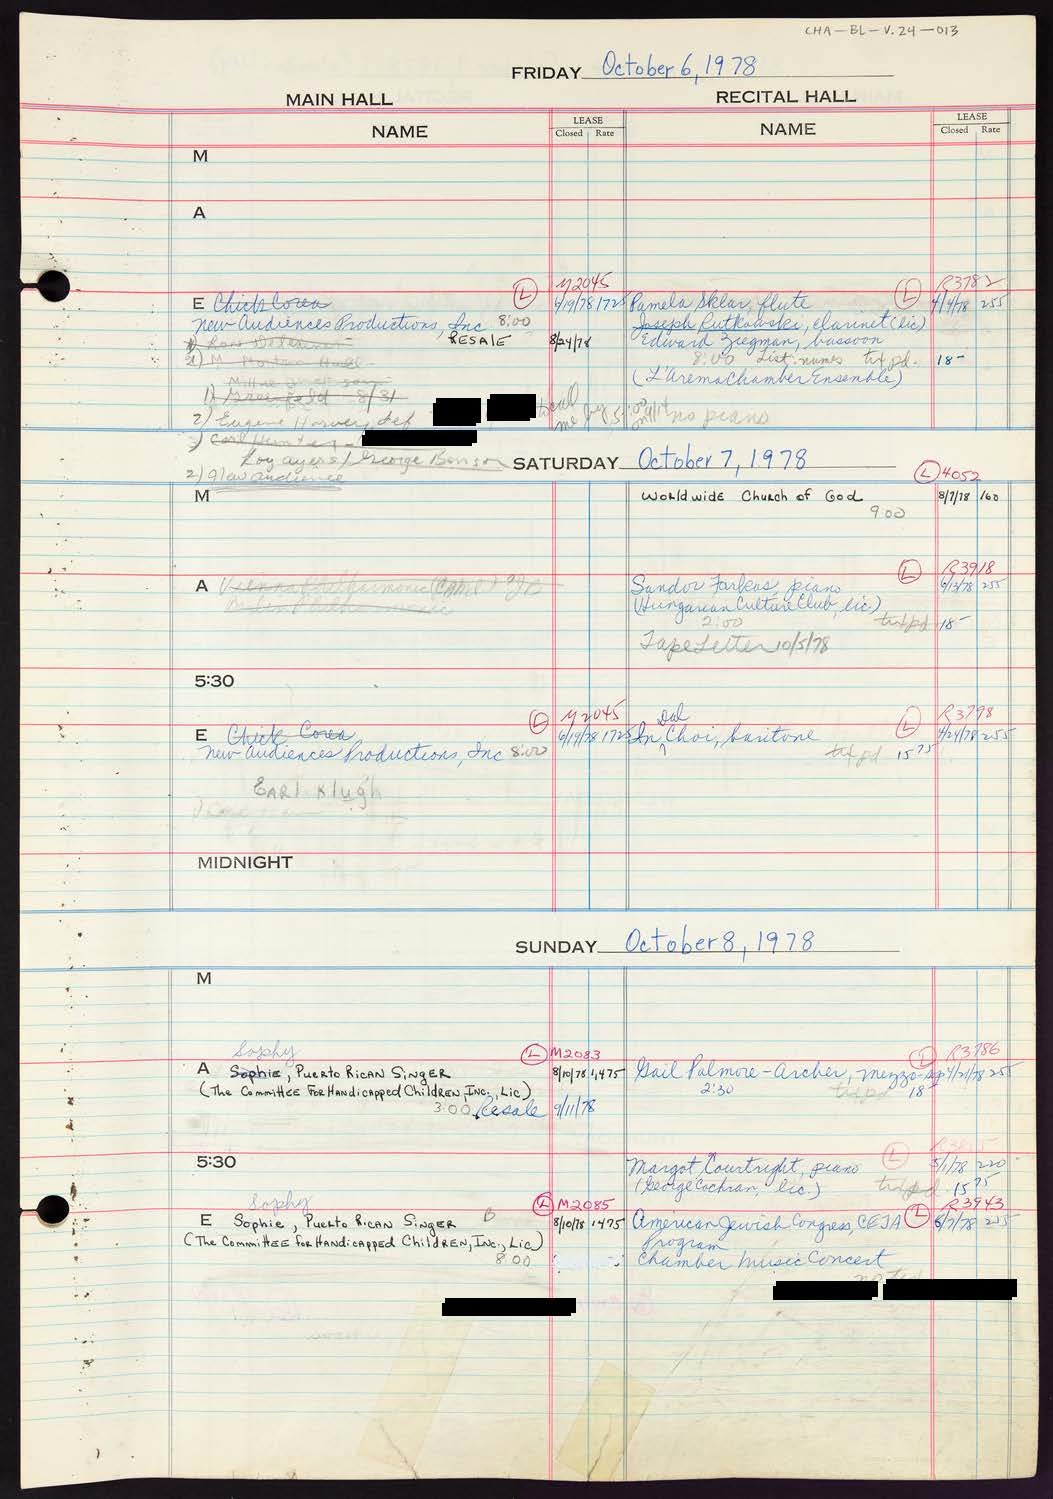 CHA-BL-V.24-013
FRIDAY October 6, 1978
MAIN HALL
RECITAL HALL
NAME
LEASE
Closed Rate
NAME
LEASE
Closed Rate
M
A
L M2045
E Chick Corea 6/19/78 1725
New Audiences Productions, Inc 8:00
RESALE 8/24/78
1) Greenfield 8/31
2) Eugene Harvey, def
call me by 5:00 on 9/14
3) Carl Hunter
Roy ayers / George Benson
2) New audience
L R3782
Pamela Sklar, flute 4/4/78 255
Joseph Rutkowski, clarinet (lic)
Edward Zregman, bassoon
8:00 List. names txf pd. 18-
(L'Arema Chamber Ensemble)
no piano
SATURDAY October 7, 1978
M
L 4052
Worldwide Church of God 8/7/78 160
9:00
A Vienna Philharmonic
Berlin Philharmonic
L R3918
Sandor Farkas, piano 6/13/78 255
(Hungarian Culture Club, lic)
2:00 txf pd 18-
Tape Letter 10/5/78
5:30
L M2045
E Chick Corea 6/19/78 1725
New Audiences Productions, Inc 8:00
Earl Klugh
L R3798
Dal
In Choi, baritone 4/24/78 255
txf pd 15 75
MIDNIGHT
SUNDAY October 8, 1978
M
Sophy L M2083
A Sophie, Puerto Rican Singer 8/10/78 1,475
(The Committee for Handicapped Children, Inc., Lic)
3:00 Resale 9/11/78
L R3786
Gail Palmore-Archer, mezzo-sop 4/21/78 255
2:30 txf pd 18
5:30
L
Margot Courtright, piano 5/1/78 220
(George Cochran, lic.) txf pd. 15 75
Sophy L M2085
E Sophie, Puerto Rican Singer B 8/10/78 1475
(The Committee for Handicapped Children, Inc., Lic)
8:00
L R3943
American Jewish Congress, CEJA 6/7/78 255
Program
Chamber Music Concert
no txf